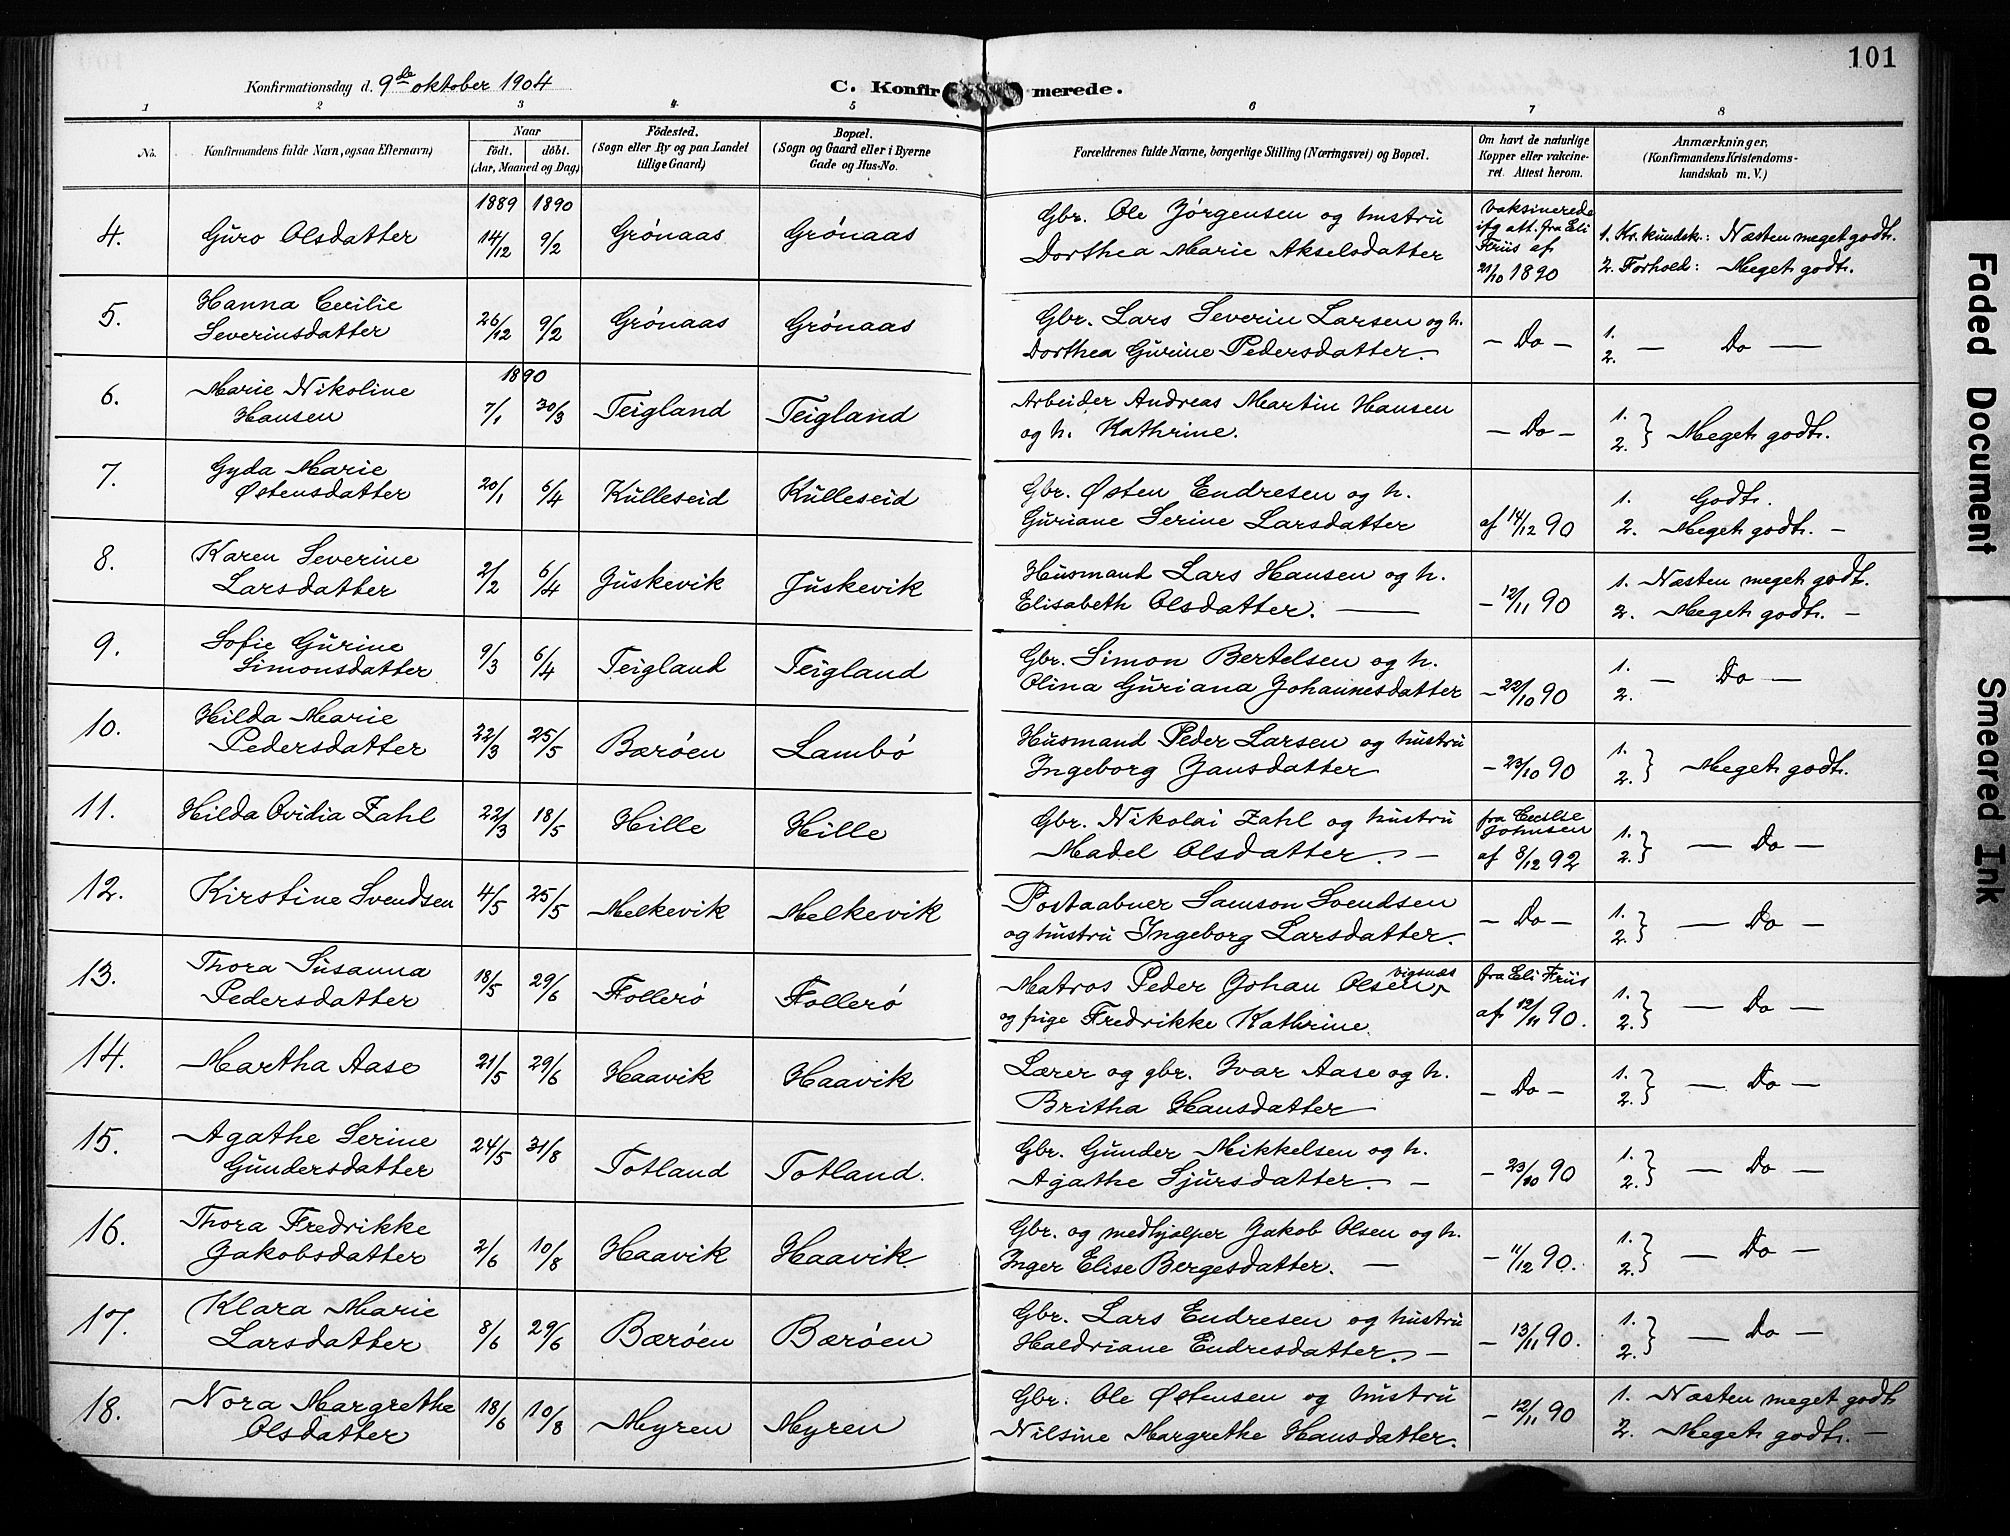 101
Konfirmationsdag d. 9de oktober 1904
C. Konfirmerede.
1 2 3 4 5 6 7 8
No.
Konfirmandens fulde Navn, ogsaa Efternavn)
Naar
födt. döbt.
(Aar, Maaned og Dag)
Födested.
(Sogn eller By og paa Landet
tillige Gaard)
Bopæl.
(Sogn og Gaard eller i Byerne
Gade og Hus-No.
Forældrenes fulde Navne, borgerlige Stilling (Næringsvei) og Bopæl.
Om havt de naturlige
Kopper eller vakcine-
ret. Attest herom.
Anmærkninger,
(Konfirmandens Kristendoms-
kundskab m. V.)
4. Guro Olsdatter 1889 14/12 1890 9/2 Grönaas Grönaas
Gbr. Ole Jörgensen og hustru
Dorthea Marie Akselsdatter
vaksinerede
ifg att. fra Eli
Friis af
21/10 1890
1. Kr. kundsk.: Næsten meget godt.
2. Forhold: Meget godt.
5. Hanna Cecilie
Severinsdatter 26/12 9/2 Grönaas Grönaas
Gbr. Lars Severin Larsen og h.
Dorthea Gurine Pedersdatter.
– Do –
1.
2. — Do —
6. Marie Nikoline
Hansen 1890 7/1 30/3 Teigland Teigland
Arbeider Andreas Martin Hansen
og h. Kathrine.
– Do –
1.
2. } Meget godt.
7. Gyda Marie
Østensdatter 20/1 6/4 Kulleseid Kulleseid
Gbr. Østen Endresen og h.
Guriane Serine Larsdatter
af 14/12 90
1. Godt.
2. Meget godt. –
8. Karen Severine
Larsdatter 2/2 6/4 Juskevik Juskevik
Husmand Lars Hansen og h.
Elisabeth Olsdatter. —
– 12/11 90
1. Næsten meget godt.
2. Meget godt. –
9. Sofie Gurine
Simonsdatter 9/3 6/4 Teigland Teigland
Gbr. Simon Bertelsen og h.
Olina Guriana Johannesdatter
– 22/10 90
1.
2. — Do —
10. Hilda Marie
Pedersdatter 22/3 25/5 Bæröen Lambö
Husmand Peder Larsen og hustru
Ingeborg Jansdatter
– 23/10 90
1.
2. } Meget godt.
11. Hilda Ovidia Zahl 22/3 18/5 Hille Hille
Gbr. Nikolai Zahl og hustru
Madel Olsdatter. –
fra Cecilie
Johnsen
af 8/12 92
1.
2. } — Do –
12. Kirstine Svendsen 4/5 25/5 Melkevik Melkevik
Postaabner Samson Svendsen
og hustru Ingeborg Larsdatter.
– Do –
1.
2. } — Do –
13. Thora Susanna
Pedersdatter 18/5 29/6 Follerö Follerö
Matros Peder Johan Olsen, vigsnæs
og pige Fredrikke Kathrine.
fra Eli Friis
af 12/11 90.
1.
2. } — Do –
14. Martha Aase 21/5 29/6 Haavik Haavik
Lærer og gbr. Ivar Aase og h.
Britha Hansdatter
– Do –
1.
2. } — Do –
15. Agathe Serine
Gundersdatter 24/5 31/8 Totland Totland.
Gbr. Gunder Mikkelsen og h.
Agathe Sjursdatter. –
– 23/10 90
1.
2. } — Do –
16. Thora Fredrikke
Jakobsdatter 2/6 10/8 Haavik Haavik.
Gbr. og medhjelper Jakob Olsen og h.
Inger Elise Bergesdatter. —
– 11/12 90.
1.
2. } — Do –
17. Klara Marie
Larsdatter 8/6 29/6 Bæröen Bæröen
Gbr. Lars Endresen og hustru
Haldriane Endresdatter. –
– 13/11 90.
1.
2. } — Do –
18. Nora Margrethe
Olsdatter 18/6 10/8 Myren Myren
Gbr. Ole Østensen og hustru
Nilsine Margrethe Hansdatter.
– 12/11 90
1. Næsten meget godt
2. Meget godt. –
Faded Document
Smeared Ink